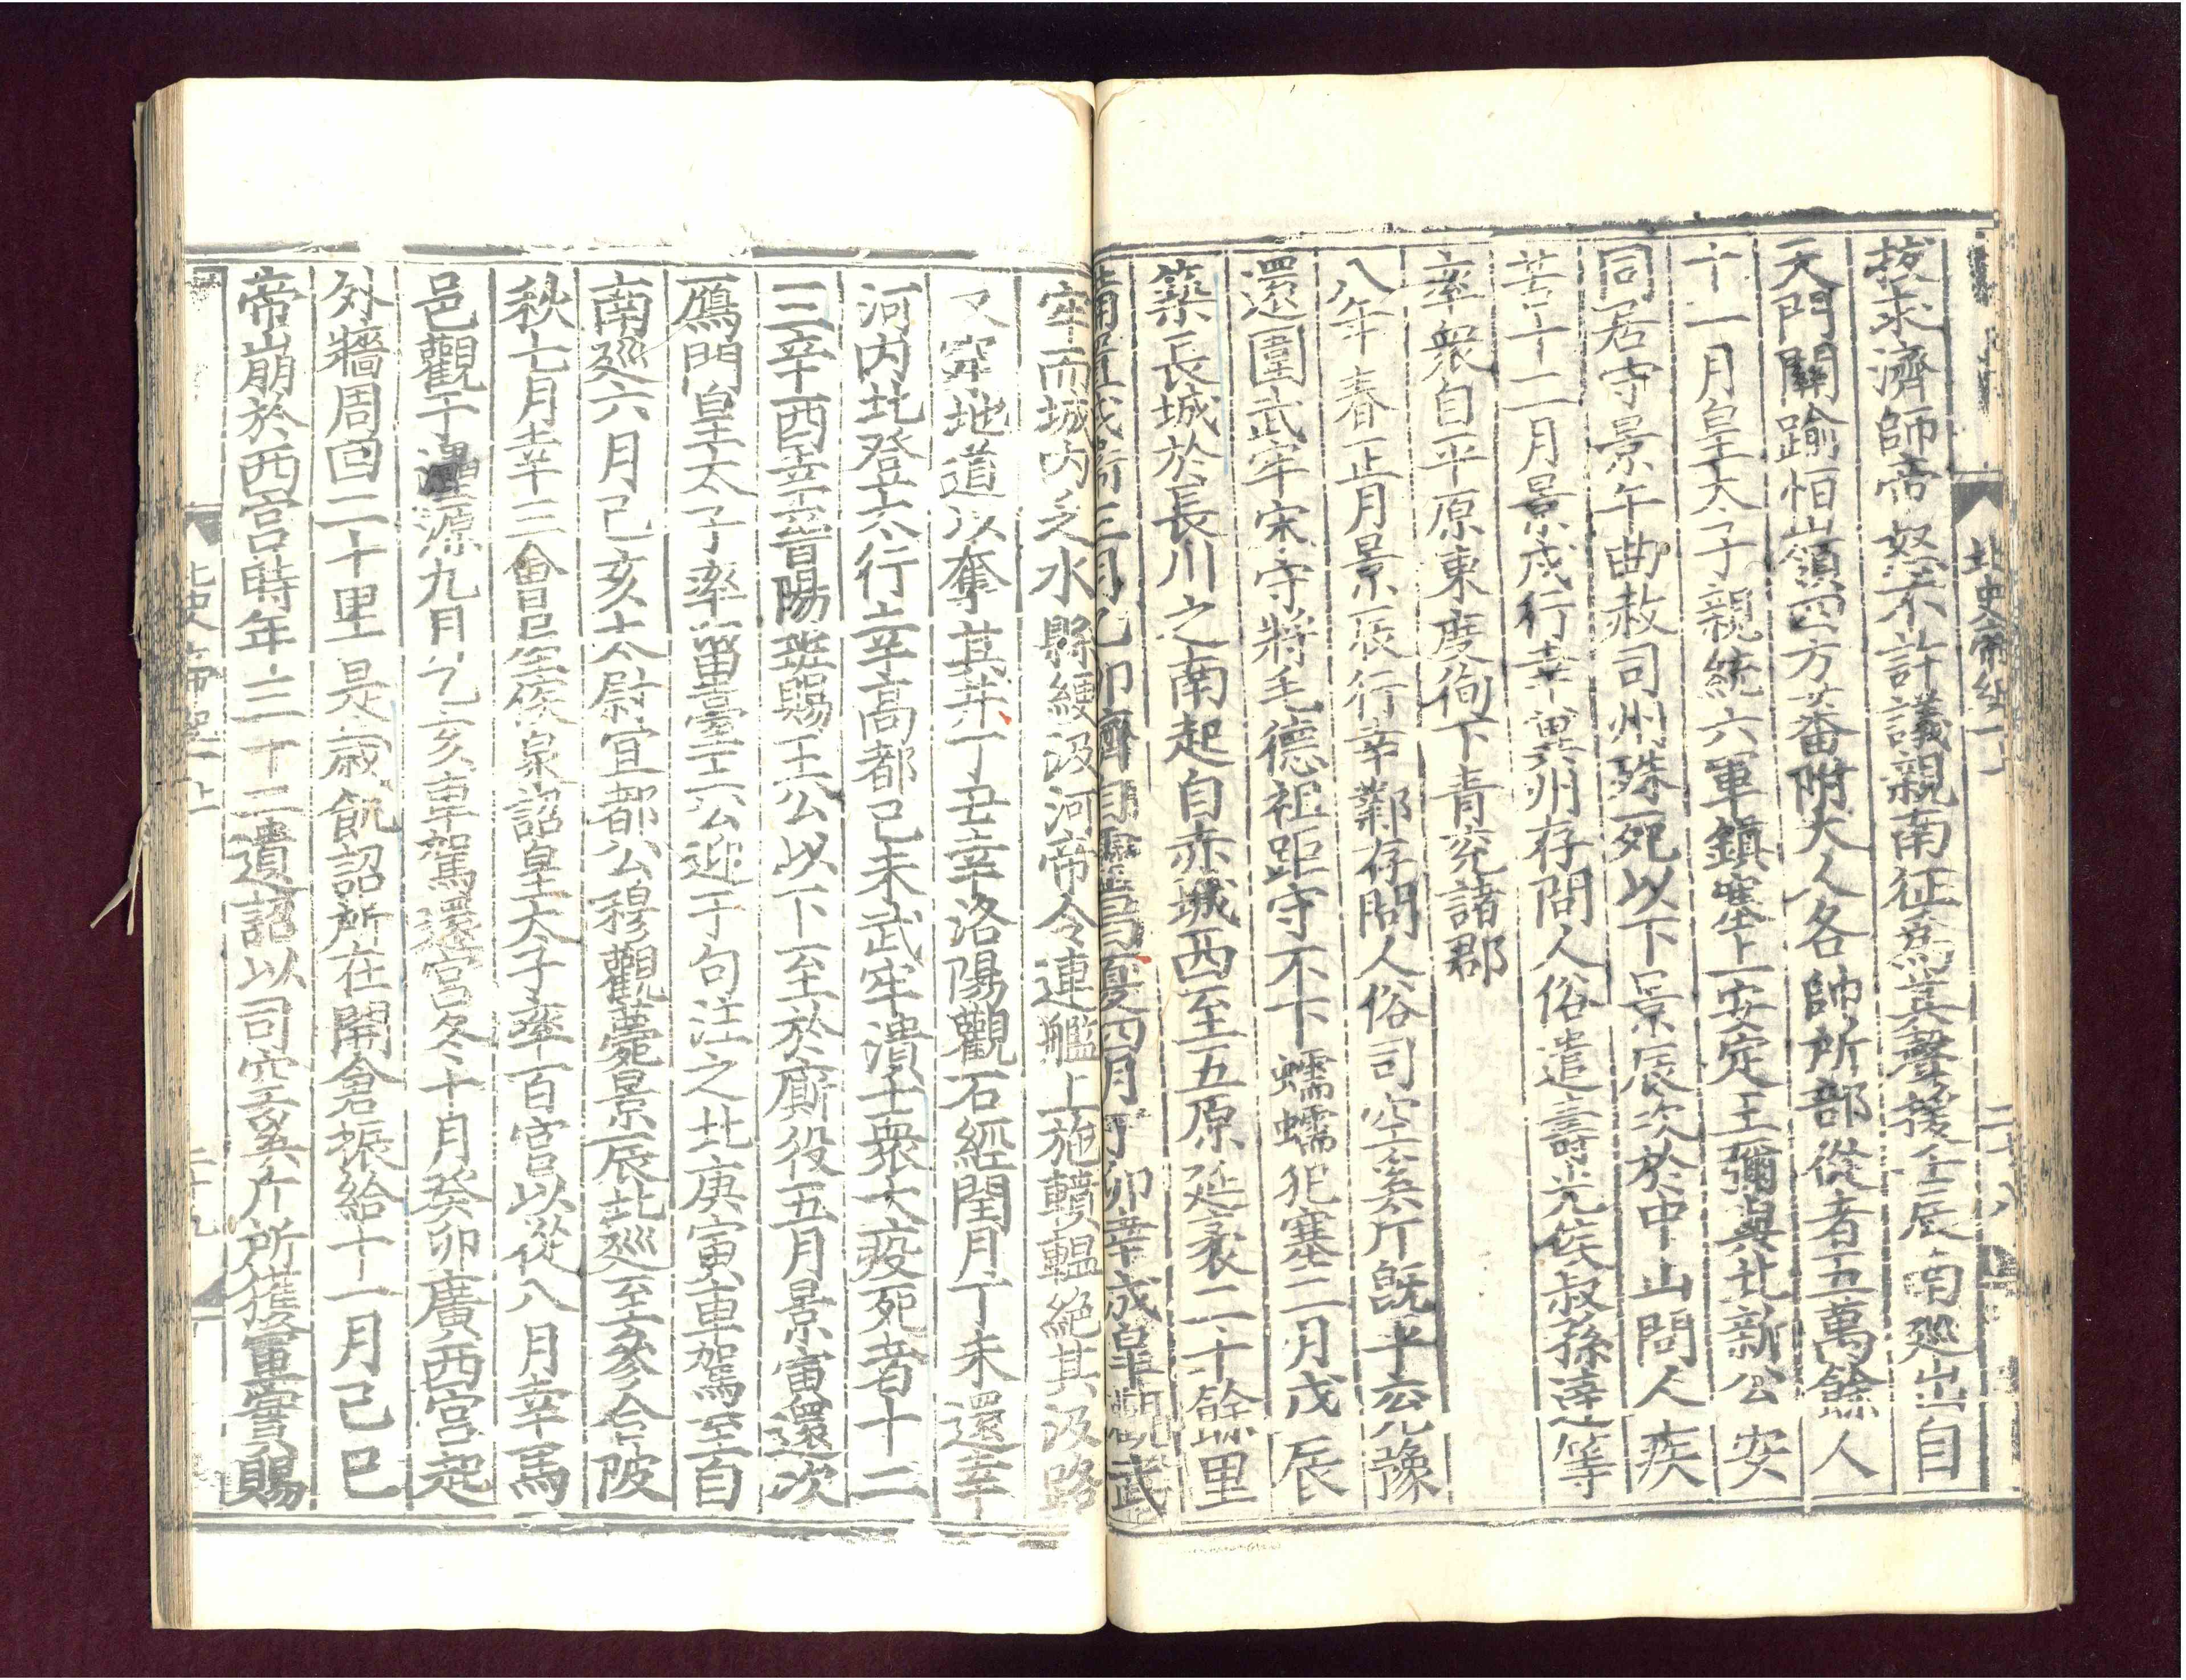 北史帝紀一
二十八
拔求濟師帝怒不許議親南征爲其聲援壬辰南巡出自
天門關踰恒嶺四方蕃附大人各帥所部從者五萬餘人
十一月皇太子親統六軍鎮塞上安定王彌與北新公安
同居守景午曲赦司州殊死以下景辰次於中山問人疾
苦十二月景戌行幸冀州存問人俗遣壽光侯叔孫達等
率衆自平原東度徇下青兖諸郡
八年春正月景辰行幸鄴存問人俗司空奚斤既平兖豫
還圍武牢宋守將毛德祖距守不下蠕蠕犯塞二月戊辰
築長城於長川之南起自赤城西至五原延袤二千餘里
備置戍衞三月乙卯濟自靈昌夏四月丁卯幸成皐觀武
牢而城内乏水縣綆汲河帝令連艦上施轒轀絶其汲路
又穿地道以奪其井丁丑幸洛陽觀石經閏月丁未還幸
河内北登太行幸高都己未武牢潰士衆大疫死者十二
三辛酉幸晉陽班賜王公以下至於廝役五月景寅還次
鴈門皇太子率留臺王公迎于句注之北庚寅車駕至自
南巡六月己亥太尉宜都公穆觀薨景辰北巡至參合陂
秋七月幸三會屋侯泉詔皇太子率百官以從八月幸馬
邑觀于灅源九月乙亥車駕還宮冬十月癸卯廣西宮起
外牆周回二十里是歲飢詔所在開倉振給十一月己巳
帝崩於西宮時年三十二遺詔以司空奚斤所獲軍實賜
北史帝紀一上
二十九